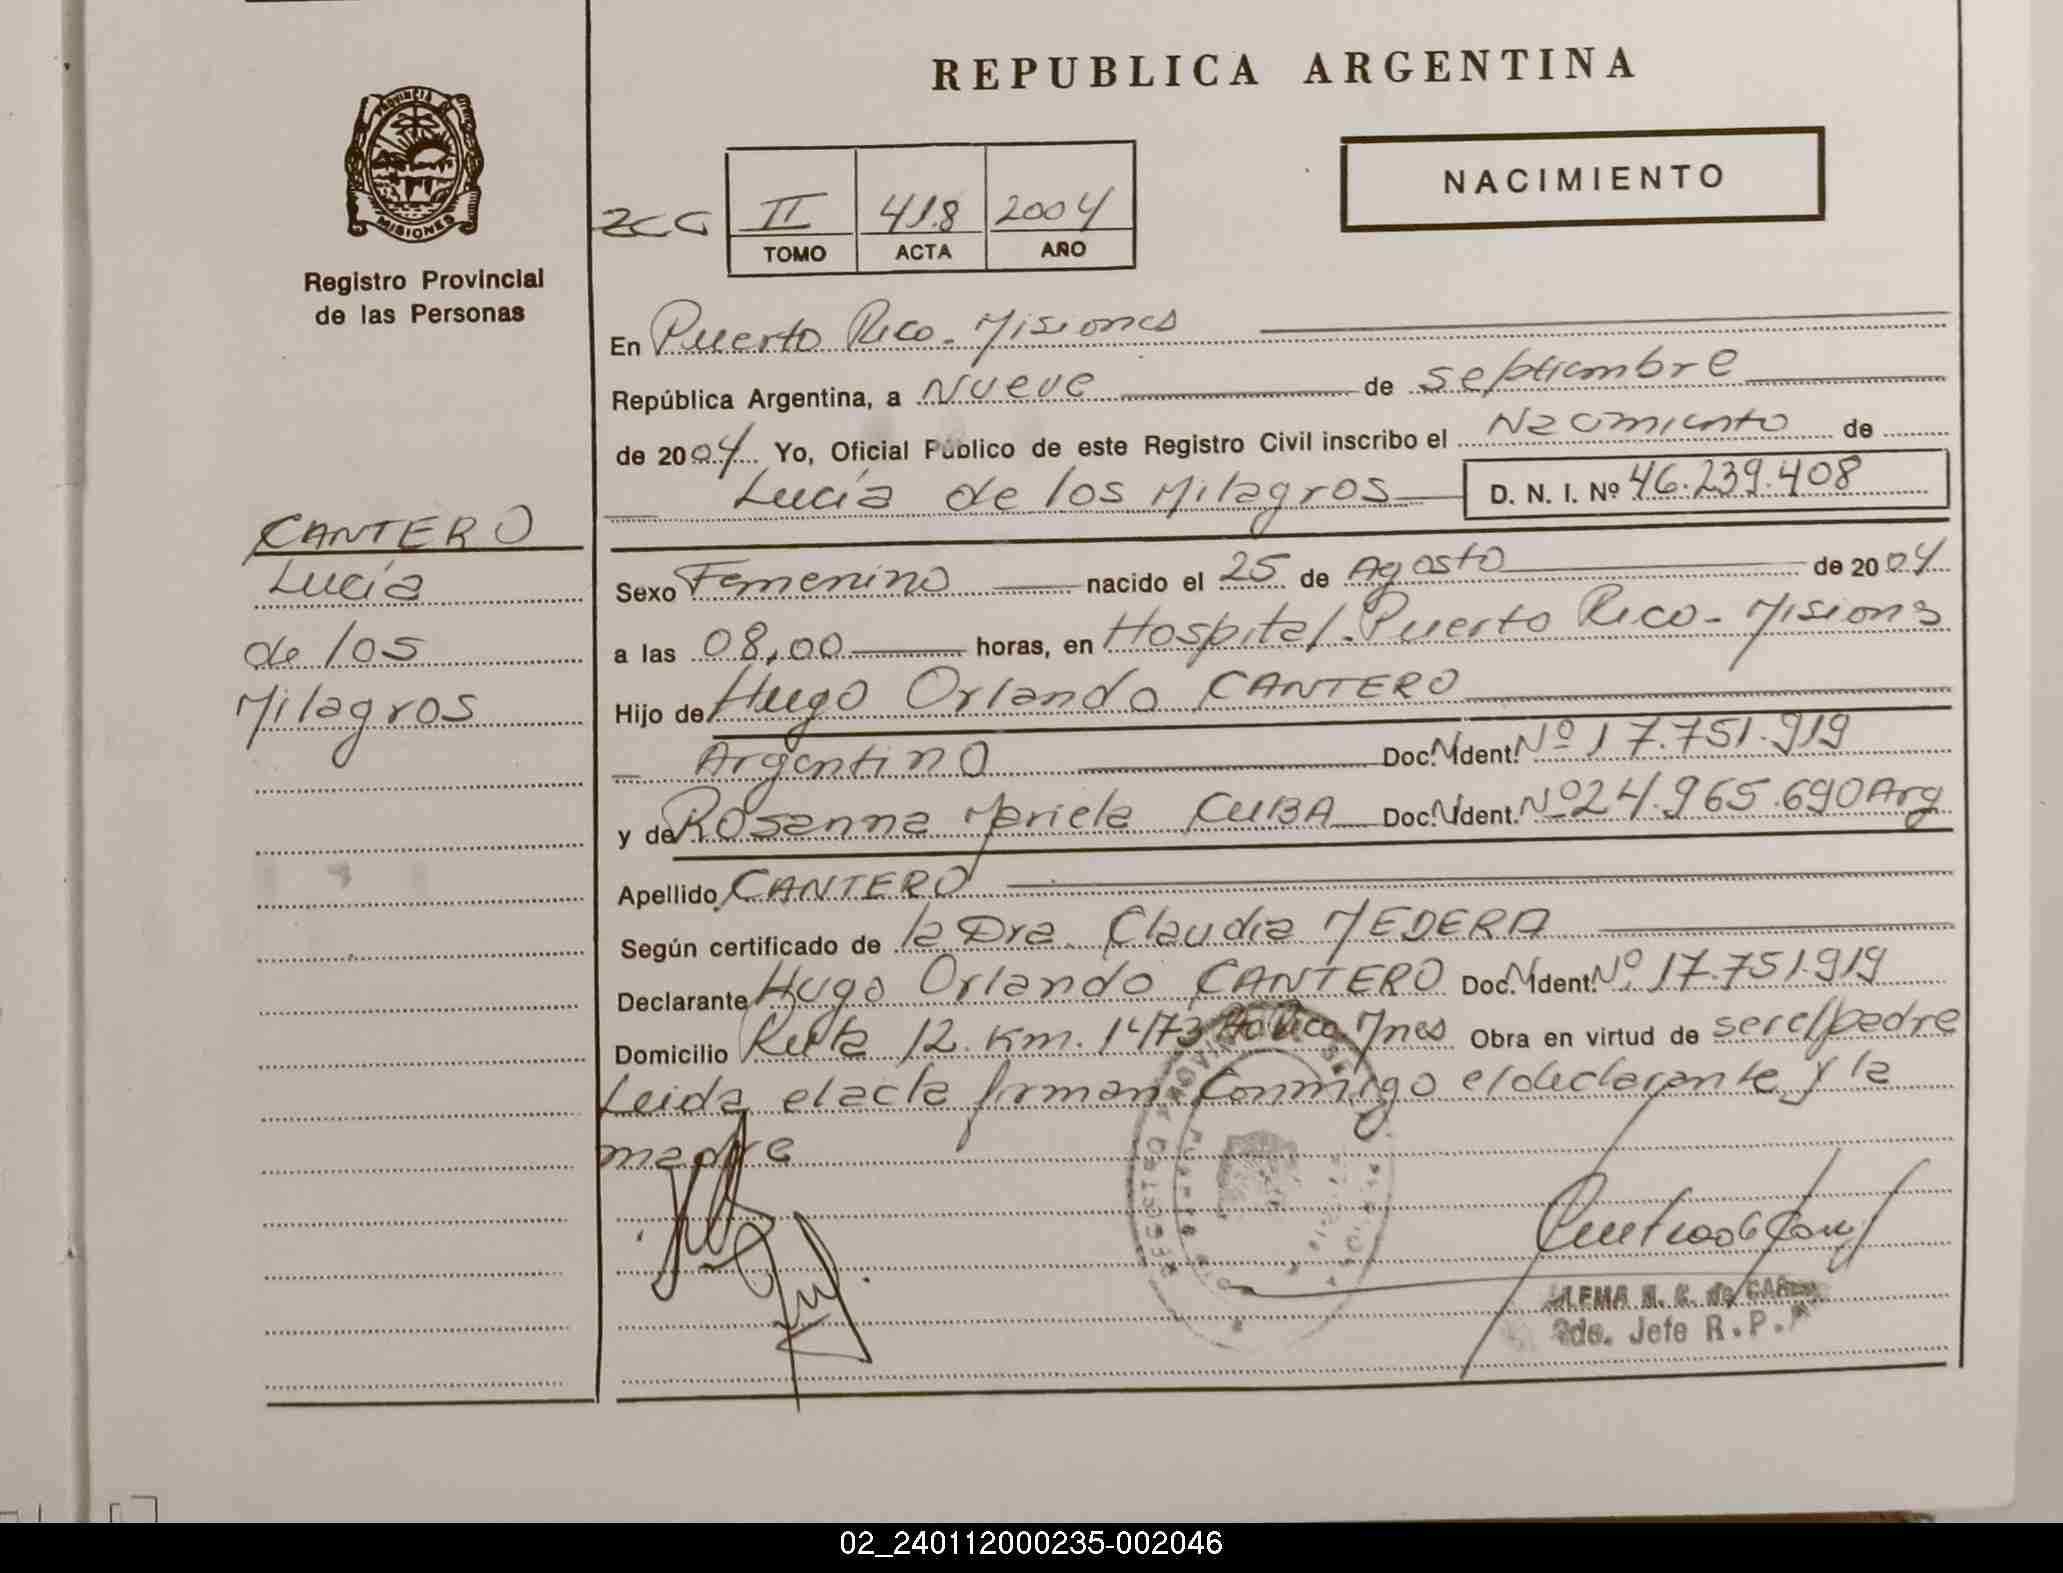 REPUBLICA ARGENTINA
NACIMIENTO
PROVINCIA DE
MISIONES
Registro Provincial
de las Personas
II 418 2004
TOMO ACTA AÑO
En Puerto Rico - Misiones
República Argentina, a Nueve de septiembre
de 2004 Yo, Oficial Público de este Registro Civil inscribo el Nacimiento de
Lucía de los Milagros D. N. I. Nº 46.239.408
CANTERO
Lucía
de los
Milagros
Sexo Femenino nacido el 25 de Agosto de 2004
a las 08,00 horas, en Hospital. Puerto Rico - Misions
Hijo de Hugo Orlando CANTERO
Argentino Doc. N Ident. Nº 17.751.919
y de Rosanna Mariela CUBA Doc. N Ident. Nº 24.965.690 Arg
Apellido CANTERO
Según certificado de la Dra. Claudia MEDERA
Declarante Hugo Orlando CANTERO Doc. N Ident. Nº 17.751.919
Domicilio Ruta 12. Km. 1473 Mnes Obra en virtud de ser el padre
Leida el acta firman conmigo el declarante y la
madre
REGISTRO PROVINCIAL
PUERTO RICO
MISIONES
2do. Jefe R.P.
02_240112000235-002046